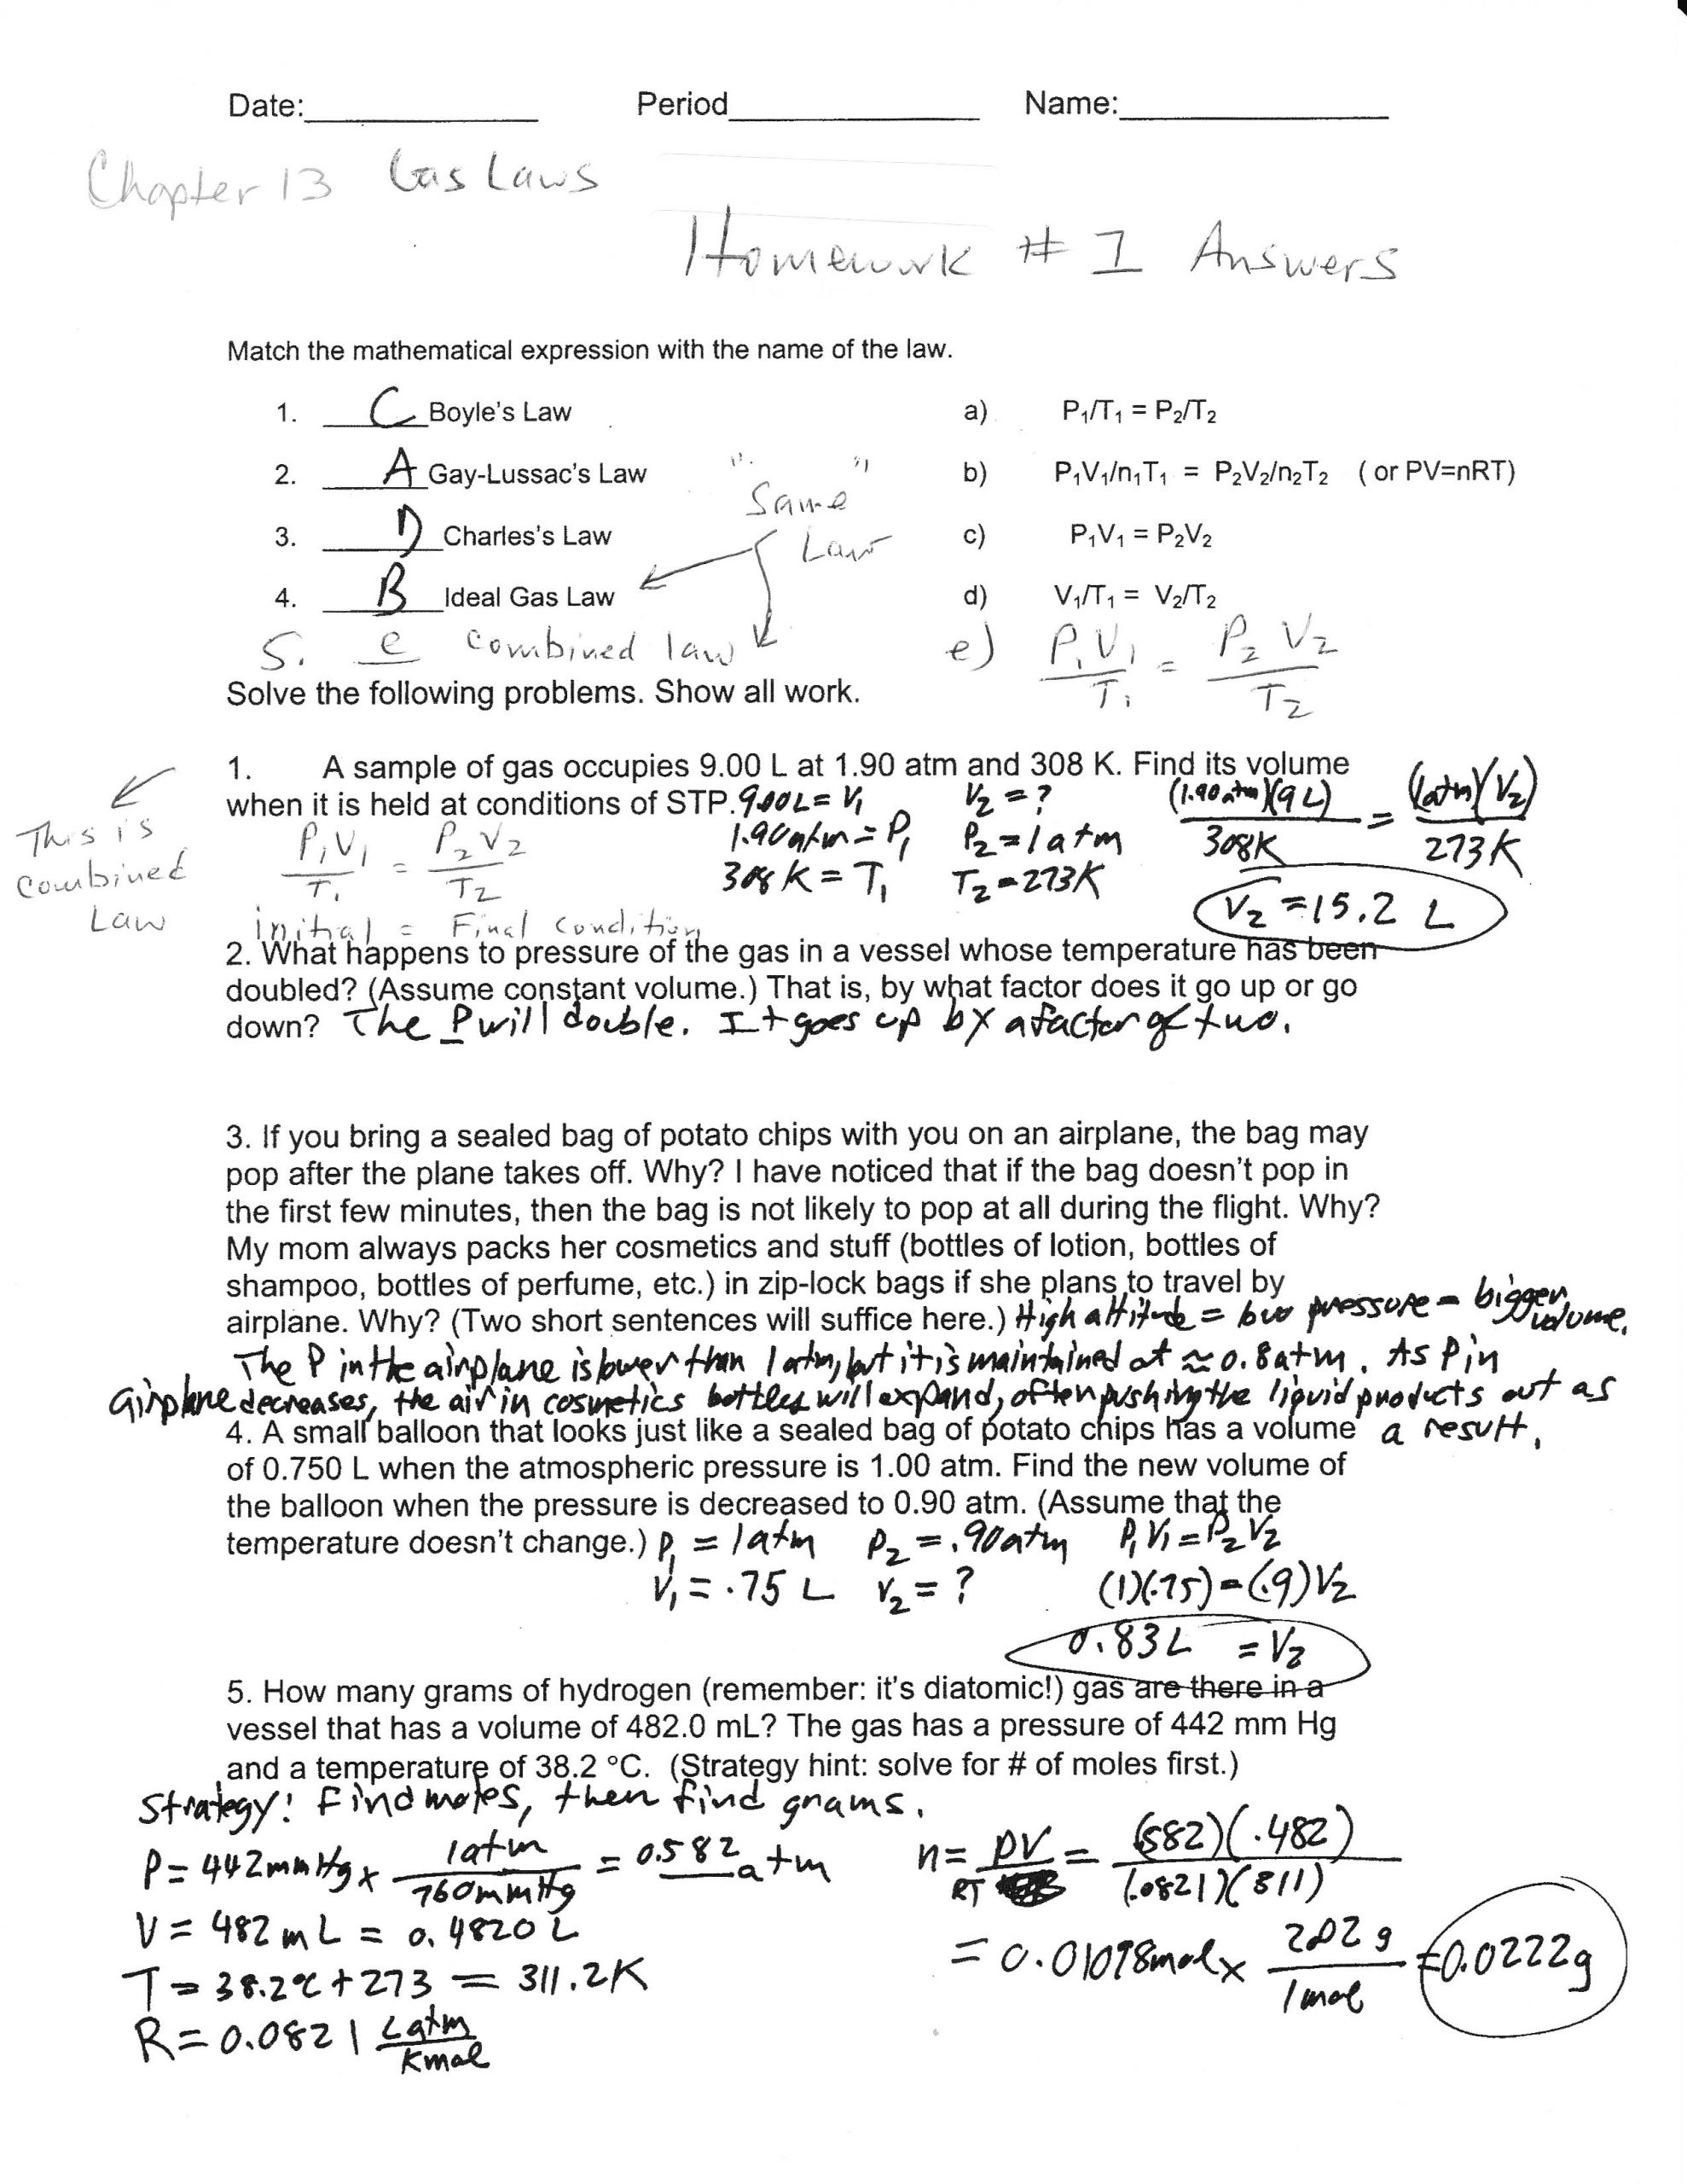 Date:____________ Period____________ Name:____________
Chapter 13 Gas Laws
Homework # 1 Answers
Match the mathematical expression with the name of the law.
1. C Boyle's Law a) P₁/T₁ = P₂/T₂
2. A Gay-Lussac's Law b) P₁V₁/n₁T₁ = P₂V₂/n₂T₂ ( or PV=nRT)
"Same"
3. D Charles's Law Law c) P₁V₁ = P₂V₂
4. B Ideal Gas Law d) V₁/T₁ = V₂/T₂
5. e combined law e) P₁V₁/T₁ = P₂V₂/T₂
Solve the following problems. Show all work.
This is
combined
Law
1. A sample of gas occupies 9.00 L at 1.90 atm and 308 K. Find its volume
when it is held at conditions of STP. 9.00L = V₁ V₂ = ? (1.90atm)(9L)/308K = (1atm)(V₂)/273K
P₁V₁/T₁ = P₂V₂/T₂ 1.90atm = P₁ P₂ = 1atm
308K = T₁ T₂ = 273K V₂ = 15.2 L
initial = Final condition
2. What happens to pressure of the gas in a vessel whose temperature has been
doubled? (Assume constant volume.) That is, by what factor does it go up or go
down? The P will double. It goes up by a factor of two.
3. If you bring a sealed bag of potato chips with you on an airplane, the bag may
pop after the plane takes off. Why? I have noticed that if the bag doesn't pop in
the first few minutes, then the bag is not likely to pop at all during the flight. Why?
My mom always packs her cosmetics and stuff (bottles of lotion, bottles of
shampoo, bottles of perfume, etc.) in zip-lock bags if she plans to travel by
airplane. Why? (Two short sentences will suffice here.) High altitude = low pressure = bigger volume.
The P in the airplane is lower than 1 atm, but it is maintained at ≈ 0.8atm. As P in
airplane decreases, the air in cosmetics bottles will expand, often pushing the liquid products out as
a result.
4. A small balloon that looks just like a sealed bag of potato chips has a volume
of 0.750 L when the atmospheric pressure is 1.00 atm. Find the new volume of
the balloon when the pressure is decreased to 0.90 atm. (Assume that the
temperature doesn't change.) P₁ = 1atm P₂ = .90atm P₁V₁ = P₂V₂
V₁ = .75 L V₂ = ? (1)(.75) = (.9)V₂
0.83L = V₂
5. How many grams of hydrogen (remember: it's diatomic!) gas are there in a
vessel that has a volume of 482.0 mL? The gas has a pressure of 442 mm Hg
and a temperature of 38.2 °C. (Strategy hint: solve for # of moles first.)
Strategy: Find moles, then find grams.
P = 442mmHg x 1atm/760mmHg = 0.582 atm n = PV/RT = (.582)(.482)/(.0821)(311)
V = 482 mL = 0.4820 L = 0.01098mol x 2.02 g/1mol = 0.0222g
T = 38.2°C + 273 = 311.2K
R = 0.0821 Latm/Kmol